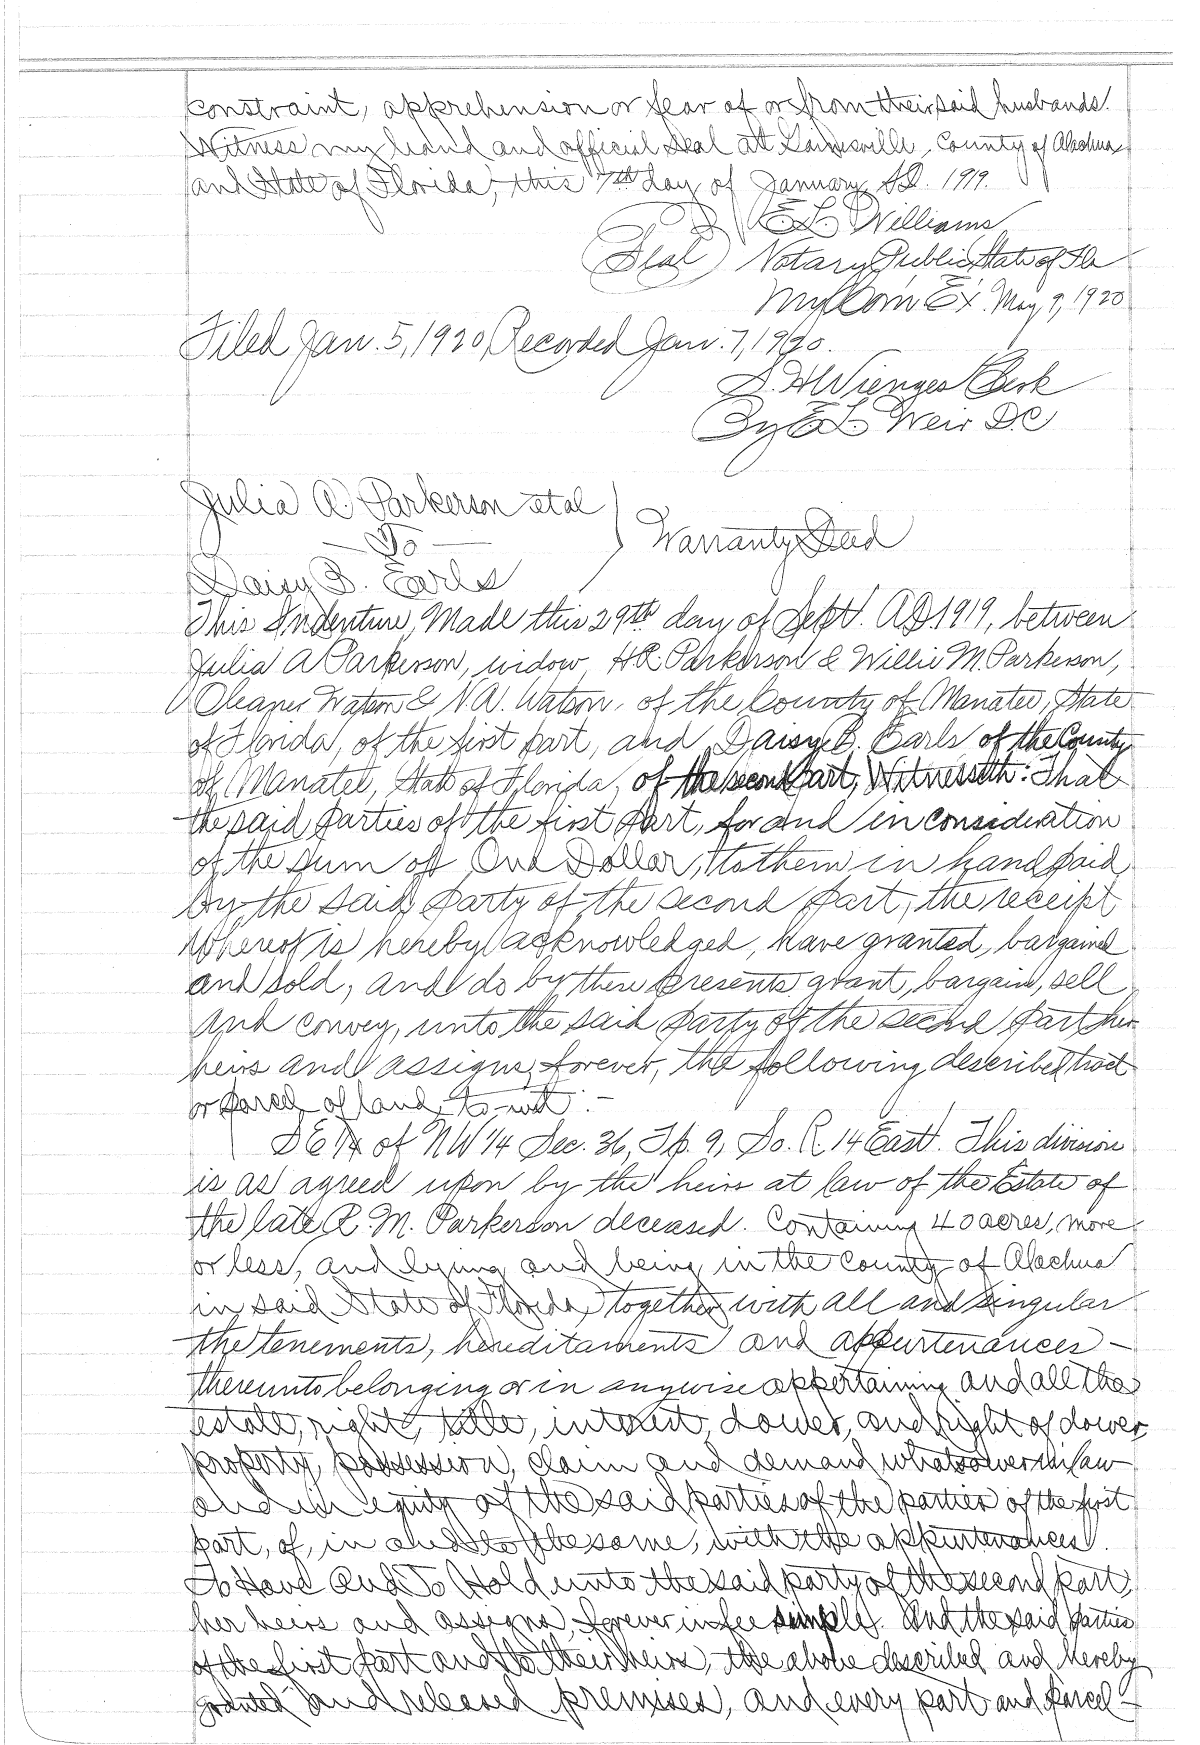 constraint, apprehension or fear of or from their said husbands.
Witness my hand and official seal at Gainesville, County of Alachua
and State of Florida, this 7th day of January A.D. 1919.
E L Williams
(Seal) Notary Public State of Fla
My Com Ex. May 9, 1920
Filed Jan. 5, 1920, Recorded Jan. 7, 1920.
S. H Wienges Clerk
By E L Weir D.C
Julia A. Parkerson et al
— To —
Warranty Deed
Daisy B. Earls
This Indenture, Made this 29th day of Sept. A.D. 1919, between
Julia A Parkerson, widow, H R Parkerson & Willie M. Parkerson,
Watson & N. A. Watson, of the County of Manatee, State
of Florida, of the first part, and Daisy B. Earls of the County
of Manatee, State of Florida, of the second part, Witnesseth: That
the said parties of the first part, for and in consideration
of the sum of One Dollar, to them in hand paid
by the said party of the second part, the receipt
whereof is hereby acknowledged, have granted, bargained
and sold, and do by these presents grant, bargain, sell
and convey, unto the said party of the second part her
heirs and assigns, forever, the following described tract
or parcel of land, to-wit:-
SE 1/4 of NW 1/4 Sec. 36, Tp. 9, So. R. 14 East. This division
is as agreed upon by the heirs at law of the Estate of
the late R. M. Parkerson deceased. Containing 40 acres, more
or less, and lying and being in the County of Alachua
in said State of Florida, together with all and singular
the tenements, hereditaments and appurtenances —
thereunto belonging or in anywise appertaining and all the
estate, right, title, interest, dower, and right of dower,
property, possession, claim and demand whatsoever in law
and in equity of the said parties of the parties of the first
part, of, in and to the same, with the appurtenances.
To Have and To Hold unto the said party of the second part,
her heirs and assigns, forever in fee simple. And the said parties
of the first part and to their heirs, the above described and hereby
granted and released premises, and every part and parcel —